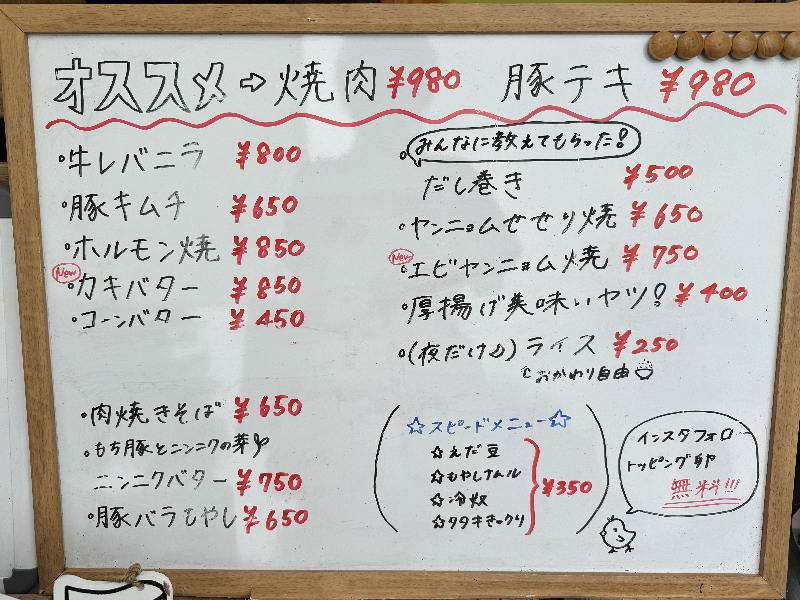 オススメ⇨焼肉 ¥980 豚テキ ¥980
・牛レバニラ ¥800
・豚キムチ ¥650
・ホルモン焼 ¥850
New
・カキバター ¥850
・コーンバター ¥450
・肉焼きそば ¥650
・もち豚とニンニクの芽
ニンニクバター ¥750
・豚バラもやし ¥650
・みんなに教えてもらった!
だし巻き ¥500
・ヤンニョムせせり焼 ¥650
New
・エビヤンニョム焼 ¥750
・厚揚げ美味いヤツ! ¥400
・(夜だけ♪)ライス ¥250
おかわり自由
☆スピードメニュー☆
☆えだ豆
☆もやしナムル
☆冷奴
☆タタキきゅうり
¥350
インスタフォロー
トッピング
無料!!!